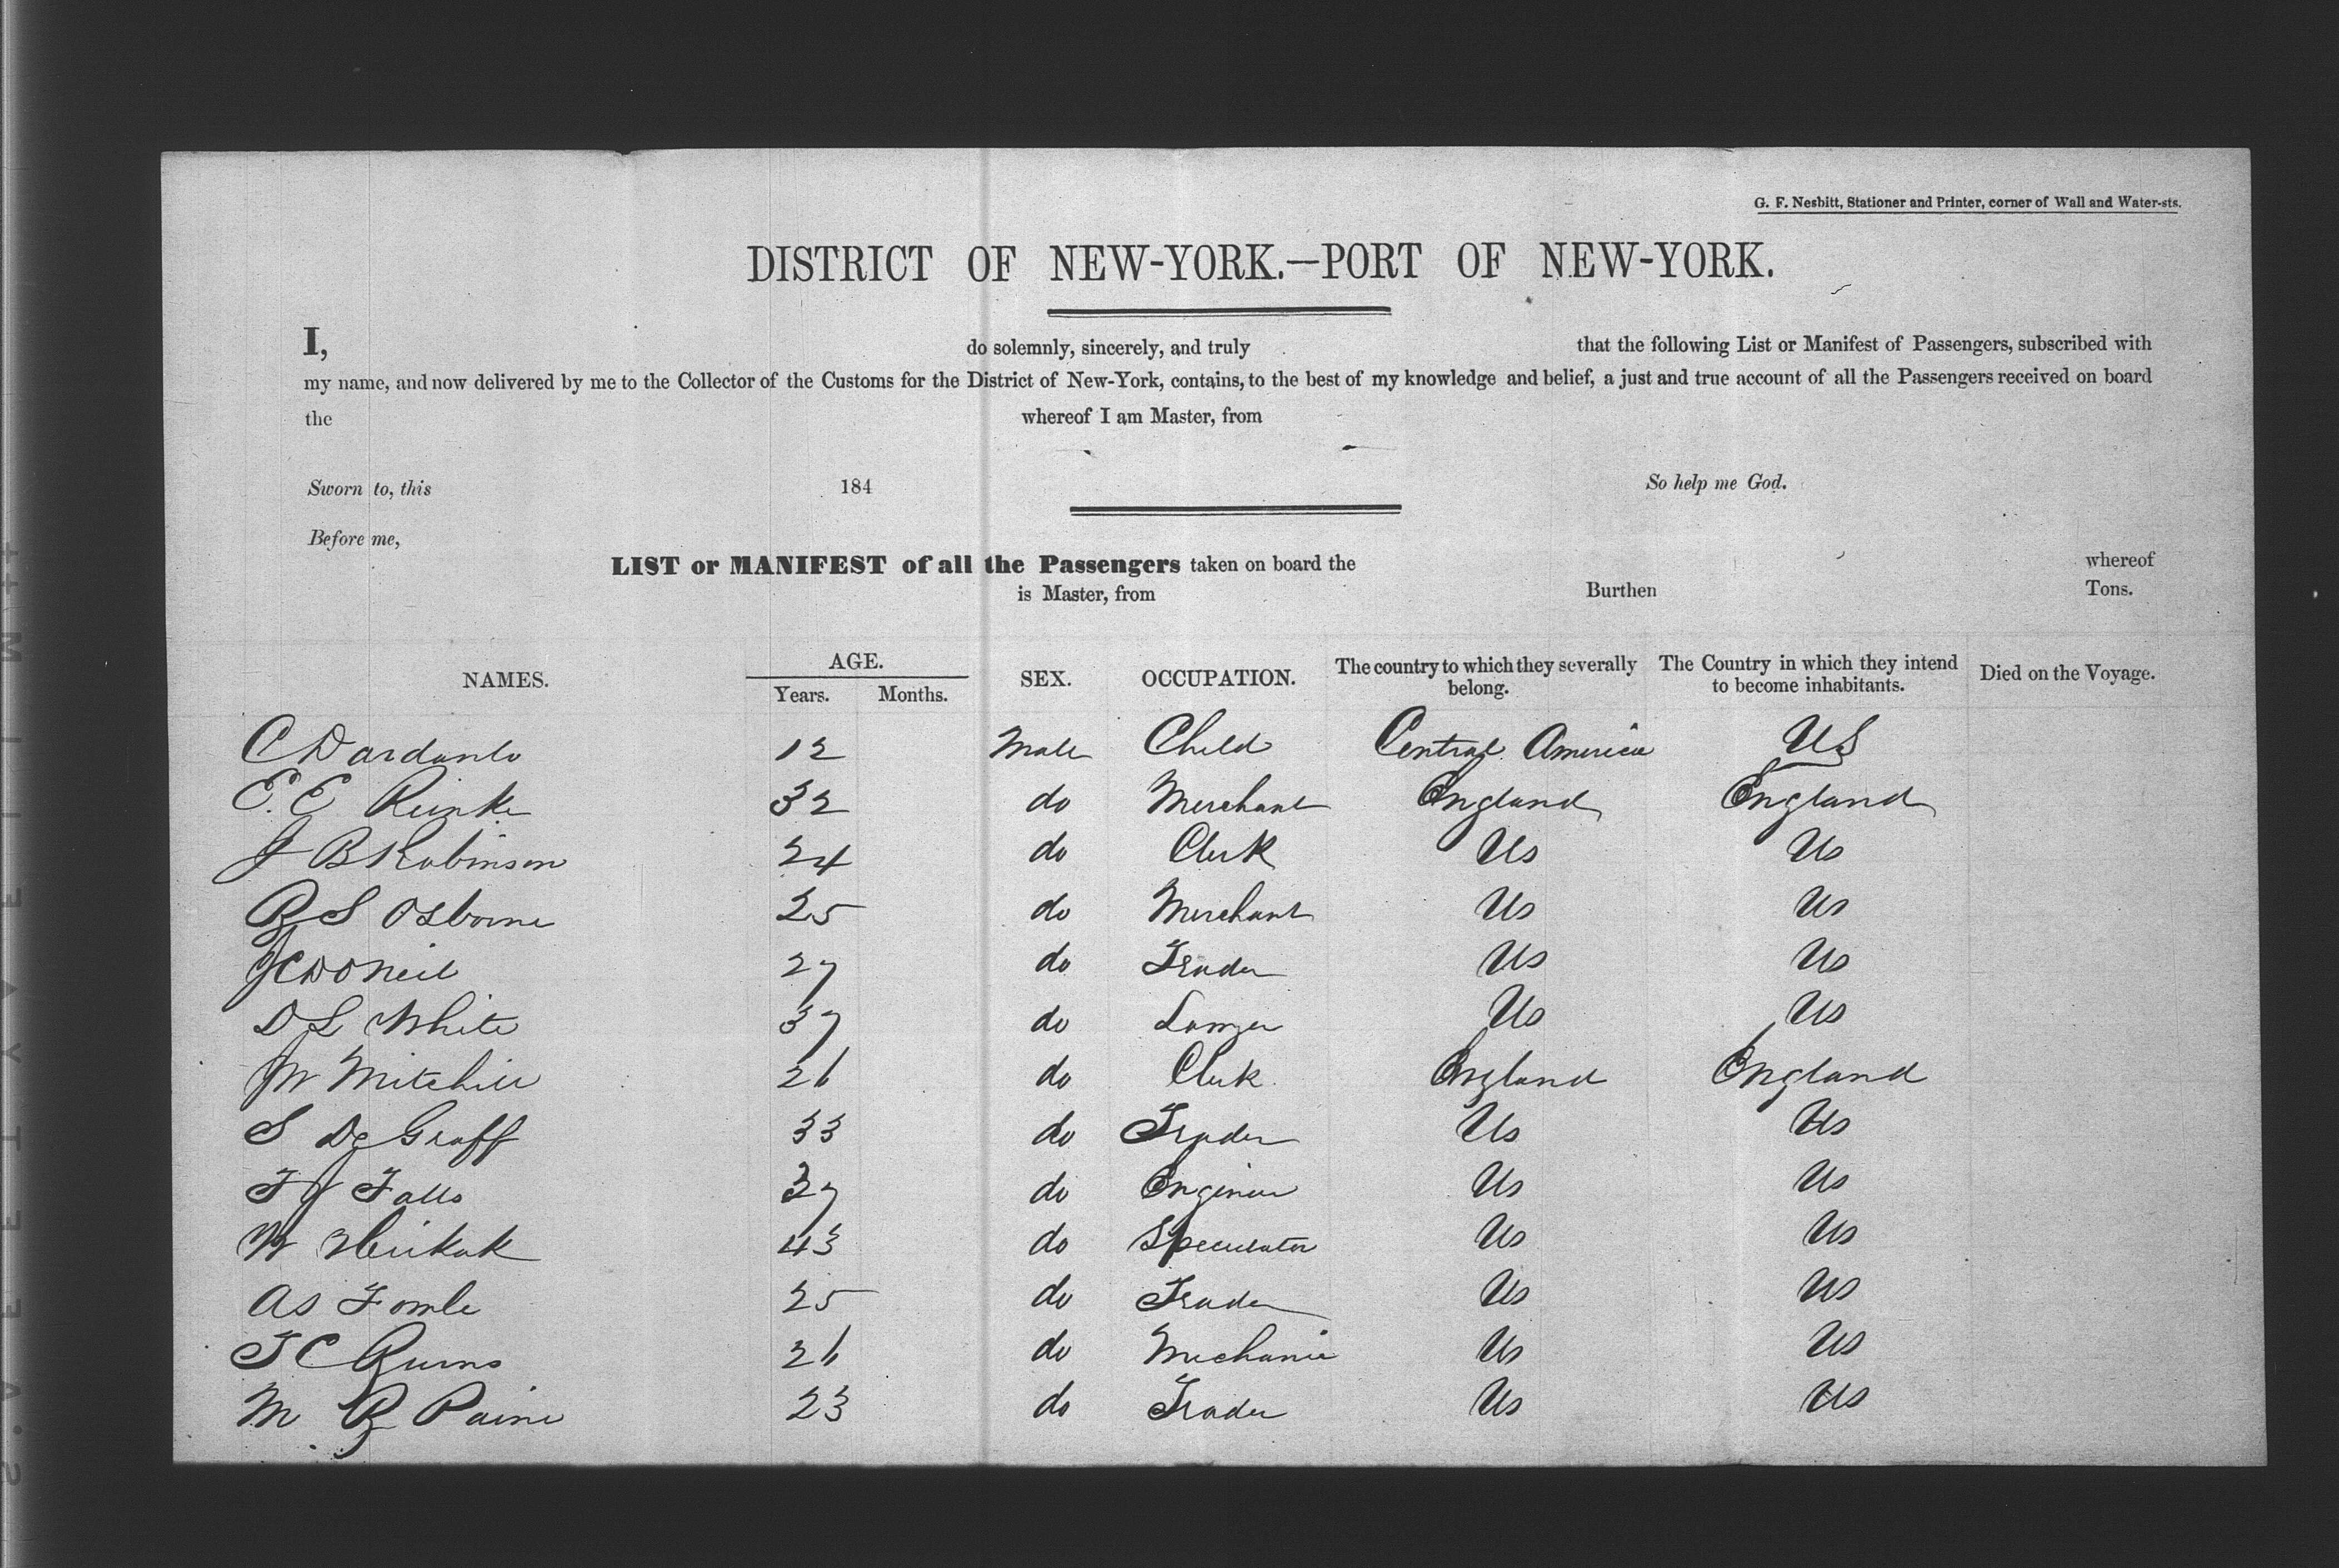 G. F. Nesbitt, Stationer and Printer, corner of Wall and Water-sts.
DISTRICT OF NEW-YORK.—PORT OF NEW-YORK.
I, do solemnly, sincerely, and truly that the following List or Manifest of Passengers, subscribed with
my name, and now delivered by me to the Collector of the Customs for the District of New-York, contains, to the best of my knowledge and belief, a just and true account of all the Passengers received on board
the whereof I am Master, from
Sworn to, this 184 So help me God.
Before me,
LIST or MANIFEST of all the Passengers taken on board the whereof
is Master, from Burthen Tons.
NAMES. AGE. Years. Months. SEX. OCCUPATION. The country to which they severally belong. The Country in which they intend to become inhabitants. Died on the Voyage.
C 12 Male Child Central America US
E. E 32 do Merchant England England
J B Robinson 24 do Clerk Us Us
S Osborne 25 do Merchant Us Us
J C D O Neil 27 do Trader Us Us
D L White 37 do Us Us
W Mitchell 26 do Clerk England England
S De Graff 33 do Trader Us Us
T J Falls 37 do Engineer Us Us
W 43 do Speculator Us Us
As 25 do Trader Us Us
T C 26 do Mechanic Us Us
M Paine 23 do Trader Us Us